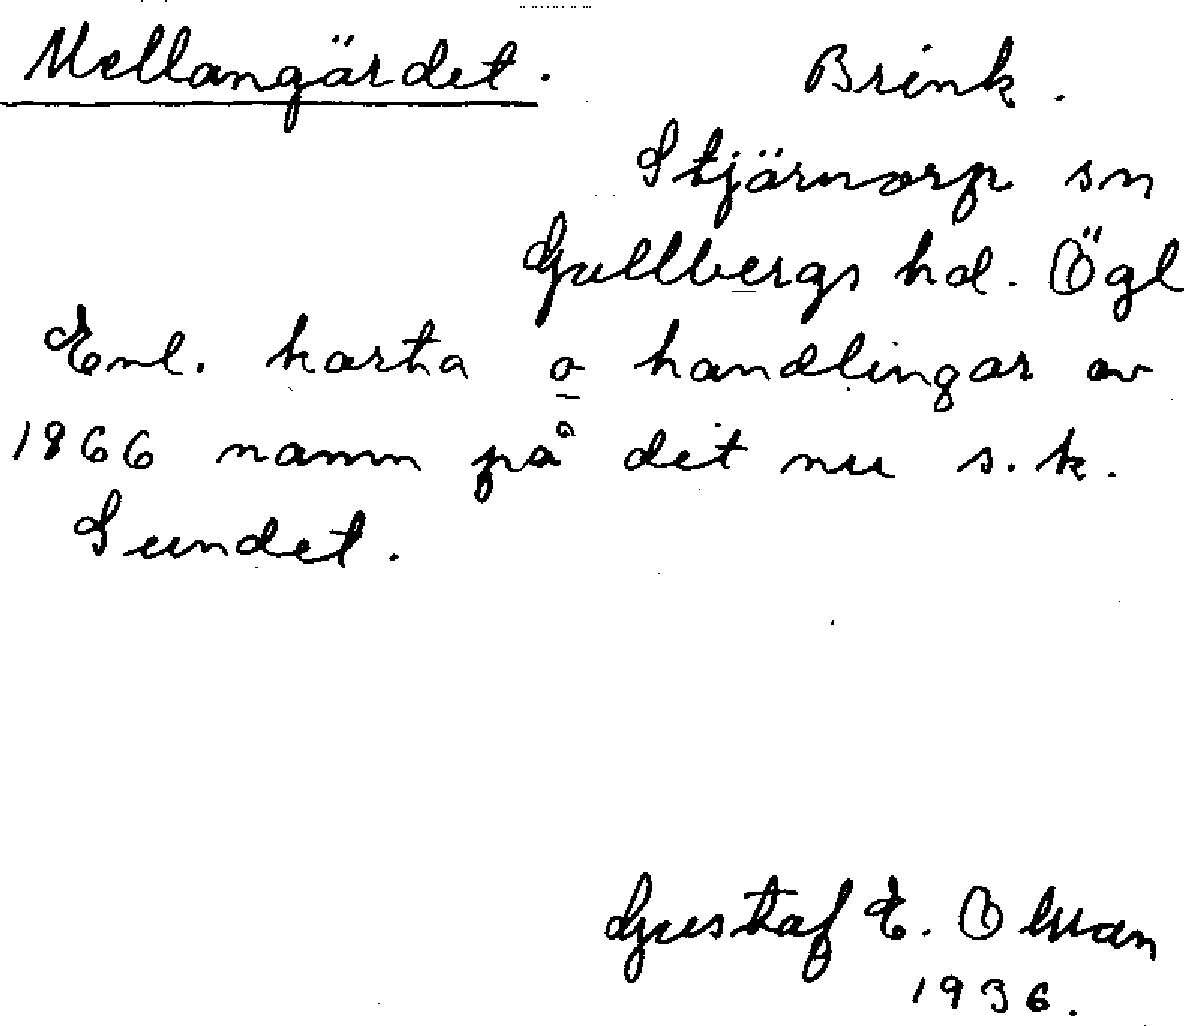 Mellangärdet. Brink.
Stjärnorp sn
Gullbergs hd. Ögl
Enl. karta o handlingar av
1866 namn på det nu s.k.
Sundet.
Gustaf E. Olman
1936.